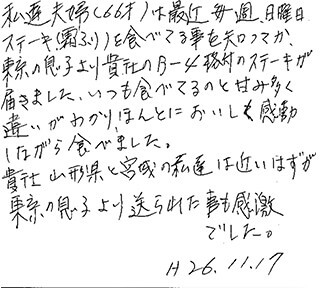 私達夫婦(66才)は最近毎週、日曜日
ステーキ(霜ふり)を食べてる事を知ってか、
東京の息子より貴社のB-4格付のステーキが
届きました、いつも食べてるのと甘み多く
違いがわかりほんとにおいしく感動
しながら食べました。
貴社山形県と宮城の私達は近いはずが
東京の息子より送られた事も感激
でした。
H26.11.17